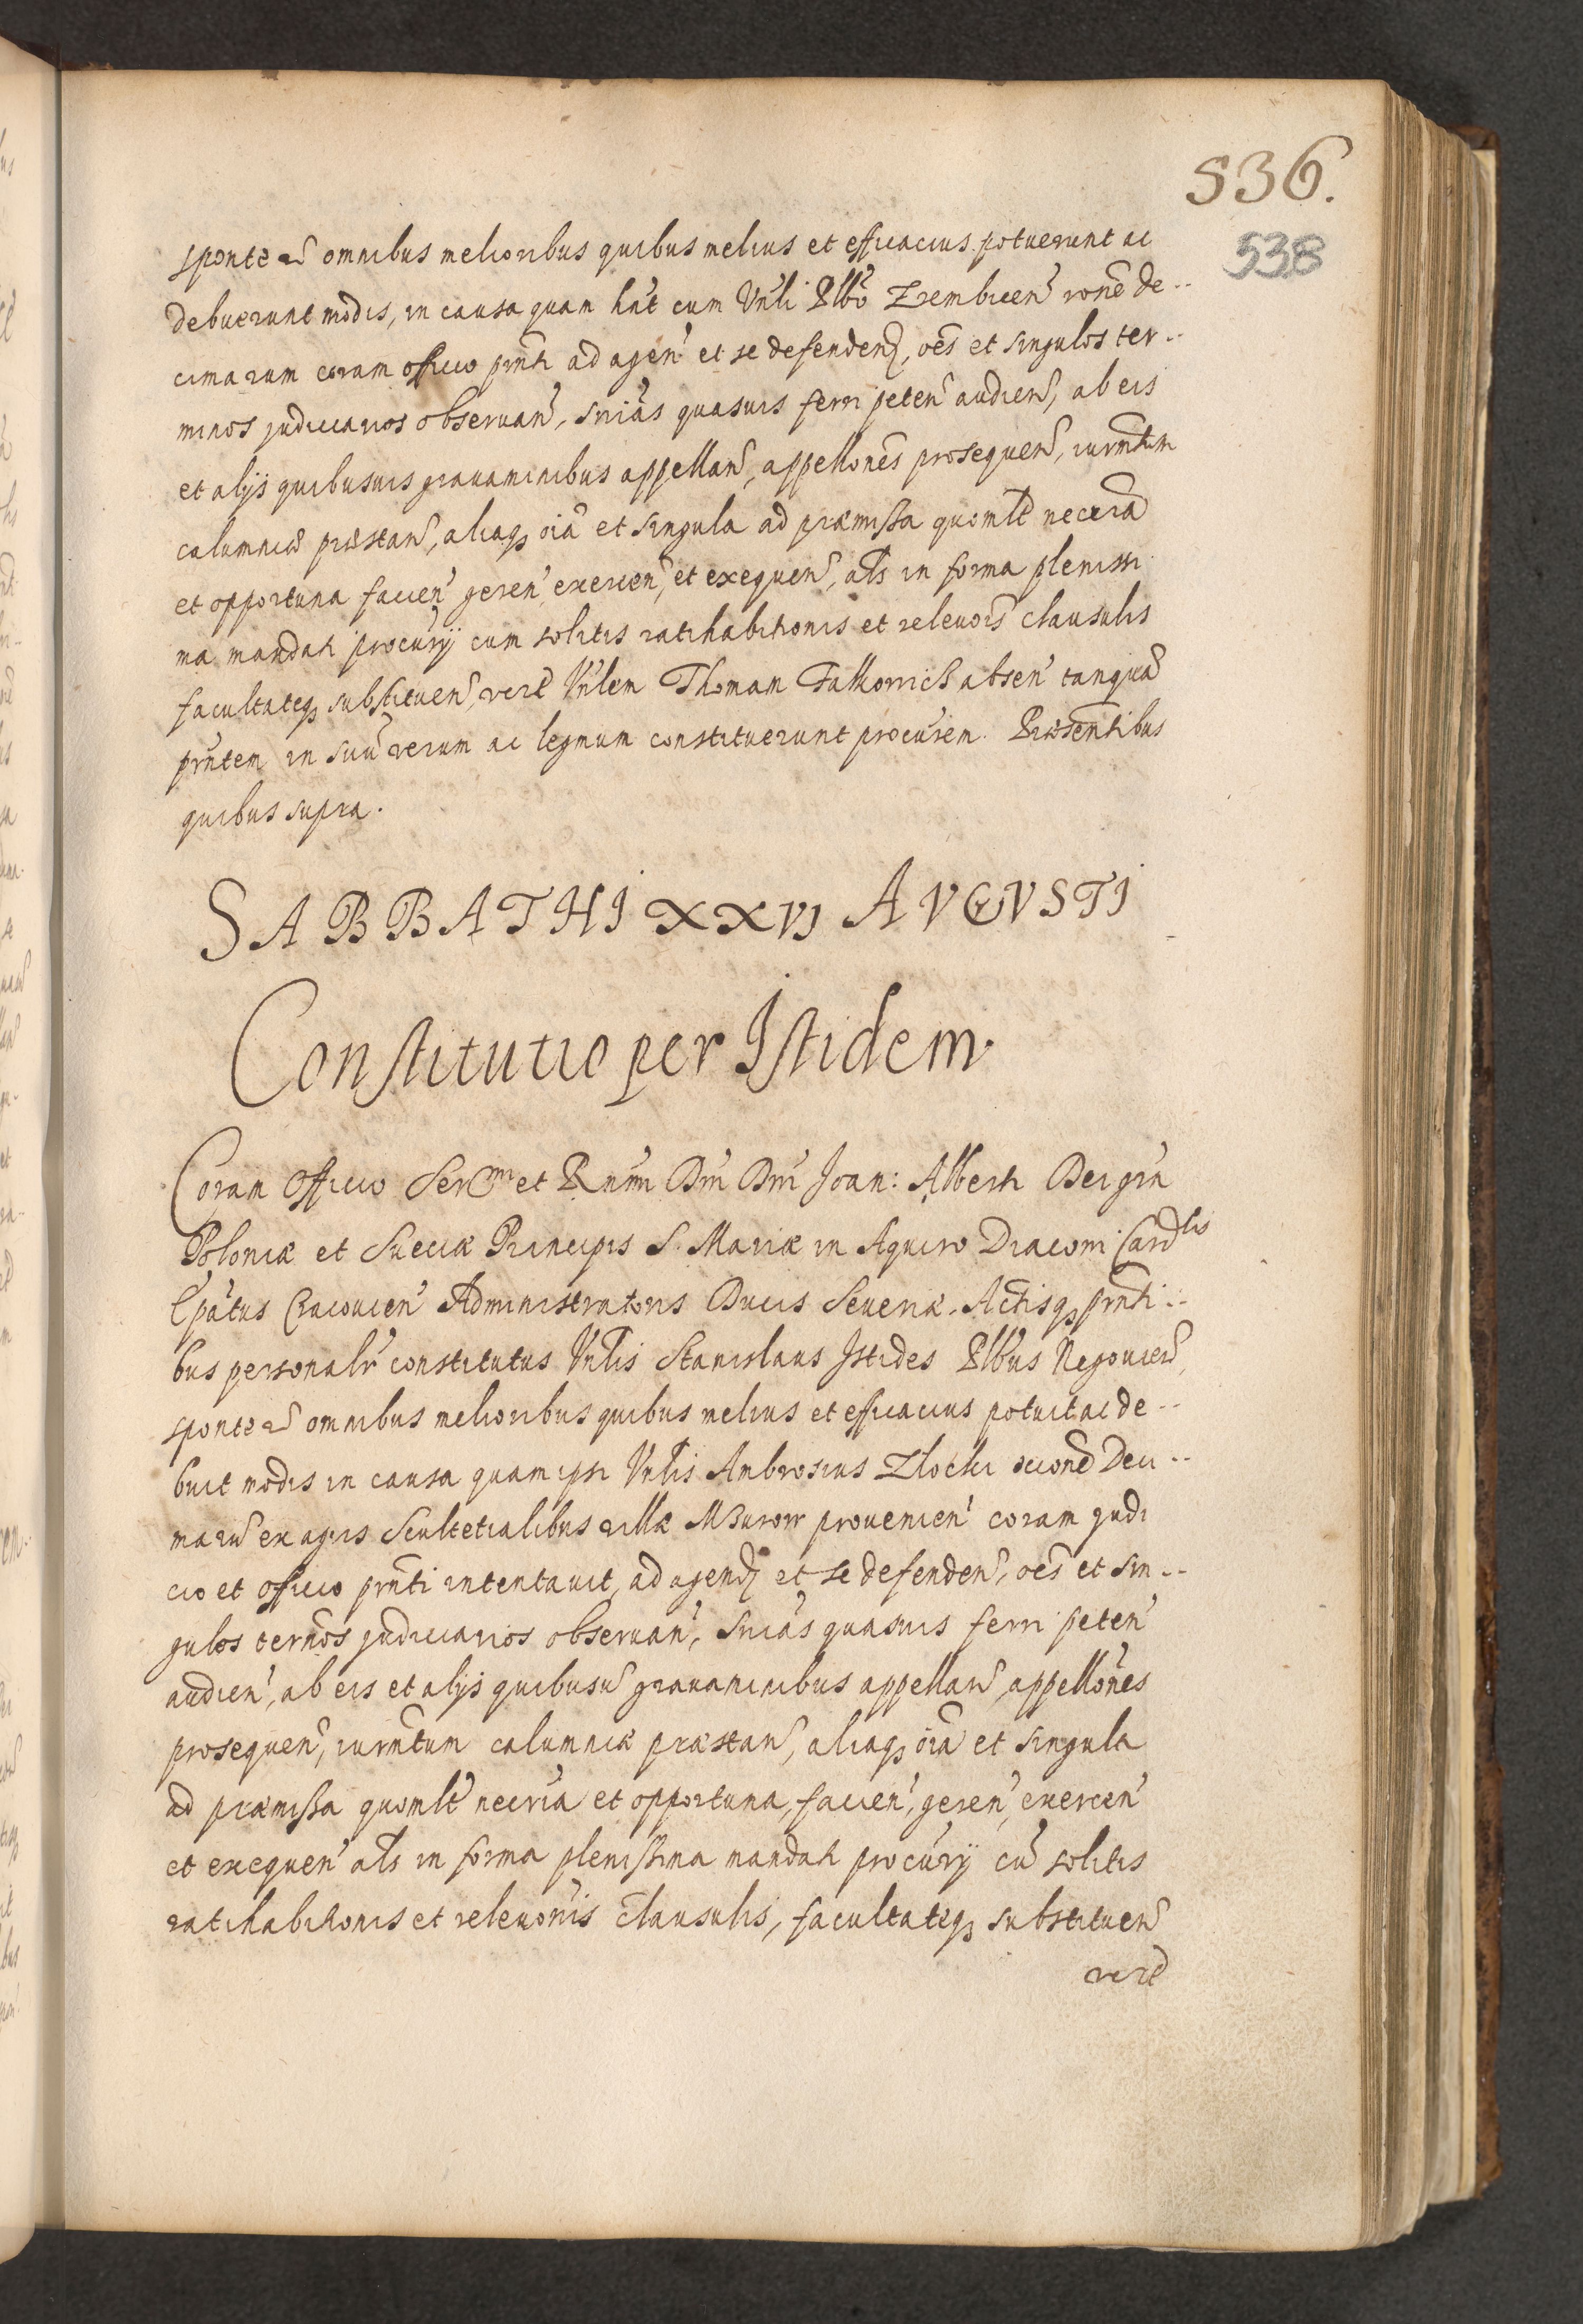 536.
538
sponte ac omnibus melioribus quibus melius et efficacius potuerunt ac
debuerunt modis, in causa quam hnt cum Vnli Plbo Zrembicen rone de--
cimarum coram officio pnti ad agen et se defenden, oes et singulos ter--
minos judiciarios obseruan, snias quasuis ferri peten audien, ab eis
et alijs quibusuis grauaminibus appellan, appellones prosequen, iurmtum
calumniae praestan, aliaq oia et singula ad praemissa quomlt neccria
et opportuna facien geren exercen, et exequen, als in forma plenissi
ma mandati procurij cum solitis ratihabitionis et releuois clausulis
facultateq substituen, vere Vnlem Thomam Falkowich absen tanqua
pntem in suu verum ac legmum constituerunt procurem. Praesentibus
quibus supra.
SABBATHI XXVI AVGVSTI
Constitutio per Istidem.
Coram Officio Sermi et Rnmi Dni Dni Joan: Alberti Dei gra
Poloniae et Sueciae Principis S. Mariae in Aquiro Diaconi Cardlis
Epatus Cracouien Administratoris Ducis Seueriae. Actisq pnti--
bus personalr constitutus Vnlis Stanislaus Istides Plbus Negouien,
sponte ac omnibus melioribus quibus melius et efficacius potuit ac de--
buit modis in causa quam ipsi Vnlis Ambrosius Zlocki occone Deci--
maru ex agris Scultetialibus villae Mzurow prouenien coram judi
cio et officio pnti intentauit, ad agend et se defenden, oes et sin--
gulos ternos judiciarios obseruan, snias quasuis ferri peten
audien, ab eis et alijs quibusu grauaminibus appellan appellones
prosequen, iurmtum calumniae praestan, aliaq oia et singula
ad praemissa quomlt neccria et opportuna, facien, geren, exercen
et exequen als in forma plenissima mandati procurij cu solitis
ratihabitionis et releuonis clausulis, facultateq substituen
vere